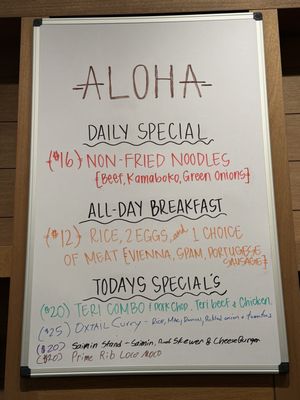 ALOHA
DAILY SPECIAL
{$16} NON-FRIED NOODLES
{Beef, Kamaboko, Green Onions}
ALL-DAY BREAKFAST
{$12} RICE, 2 EGGS, and 1 CHOICE
OF MEAT {VIENNA, SPAM, PORTUGESE
SAUSAGE}
TODAYS SPECIAL'S
($20) TERI COMBO - Pork Chop, Teri beef & Chicken
($25) OXTAIL Curry - Rice, Mac, Pickled onions & tomatoes
($20) Saimin Stand - Saimin, Skewer & Cheese Burger
($20) Prime Rib Loco Moco